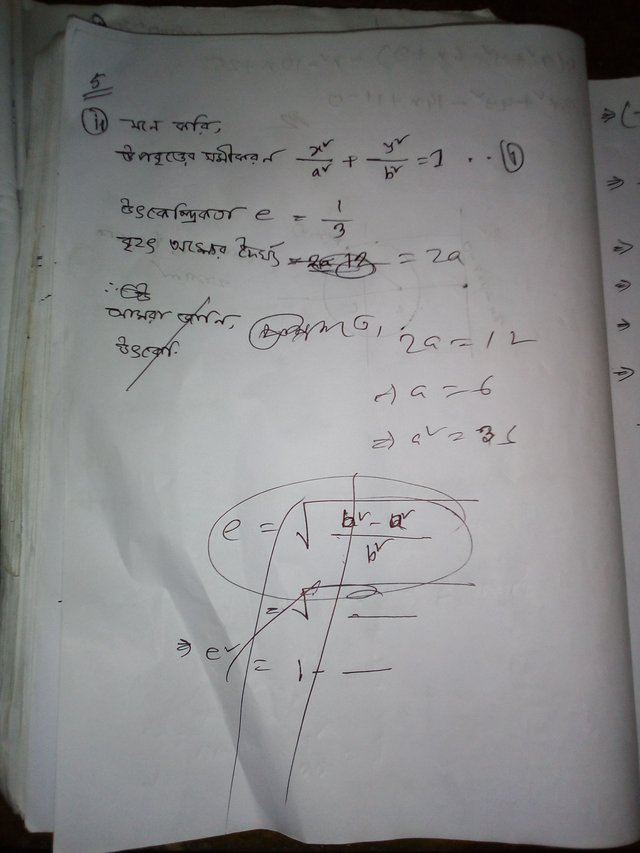 5
ii মনে করি,
উপবৃত্তের সমীকরণ x²/a² + y²/b² = 1 ... (i)
উৎকেন্দ্রিকতা e = 1/3
বৃহৎ অক্ষের দৈর্ঘ্য = 2a
আমরা জানি,
উৎকে
2a = 12
⇒ a = 6
⇒ a² = 36
e = √(b² - a²)/b²
= √
⇒ e² = 1 -